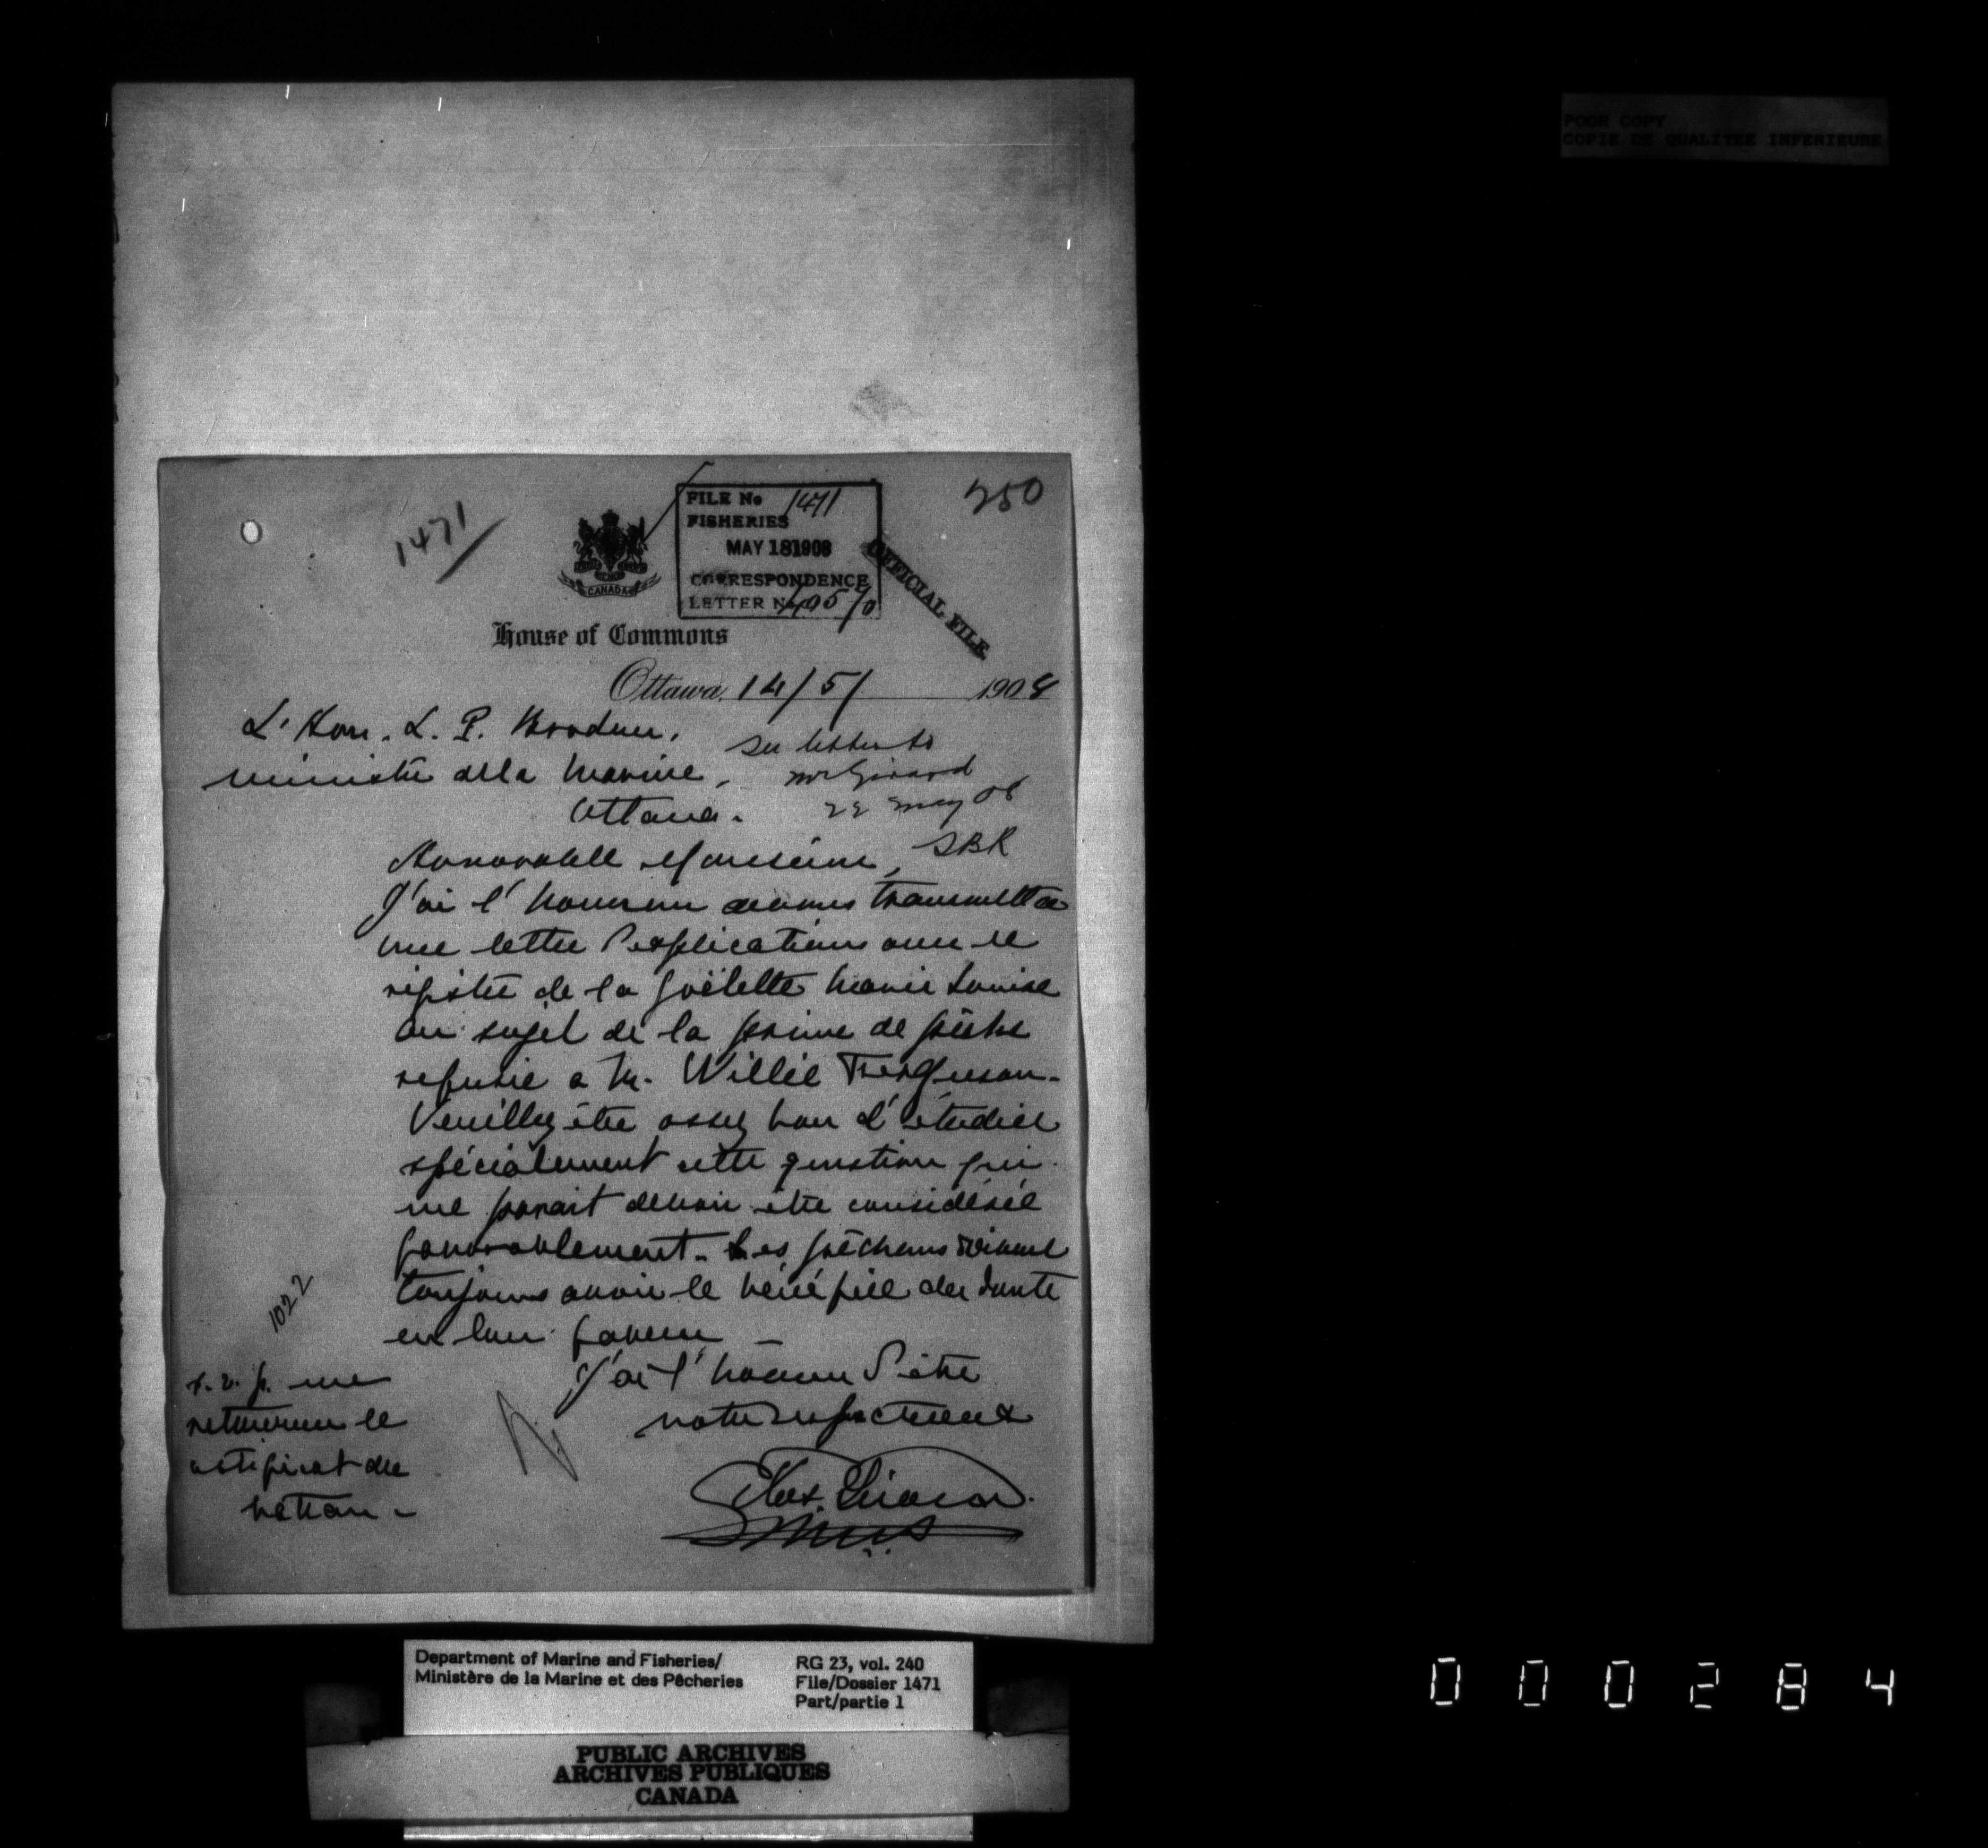 POOR COPY
COPIE DE QUALITEE INFERIEURE
1471
250
FILE No 1471
FISHERIES
MAY 18 1908
CORRESPONDENCE
LETTER No
OFFICIAL FILE
CANADA
House of Commons
Ottawa, 14/5/ 1908
L'Hon. L. P. Brodeur,
ministre de la Marine,
Ottawa.
See letter to
Mr Girard
22 May 08
SBR
Honorable Monsieur,
J'ai l'honneur de vous transmettre
une lettre d'explications avec le
régistre de la goëlette Marie Louise
au sujet de la prime de pêche
refusée a M. Willie Ferguson.
Veuillez être assez bon d'étudier
spécialement cette question qui
me parait devoir être considérée
favorablement. Les pêcheurs doivent
toujours avoir le bénéfice du doute
en leur faveur —
J'ai l'honneur d'être
votre respectueux
Jos. Girard
M.P.
1022
s.v.p. me
retourner le
certificat du
bateau —
Department of Marine and Fisheries/
Ministère de la Marine et des Pêcheries
RG 23, vol. 240
File/Dossier 1471
Part/partie 1
PUBLIC ARCHIVES
ARCHIVES PUBLIQUES
CANADA
000284